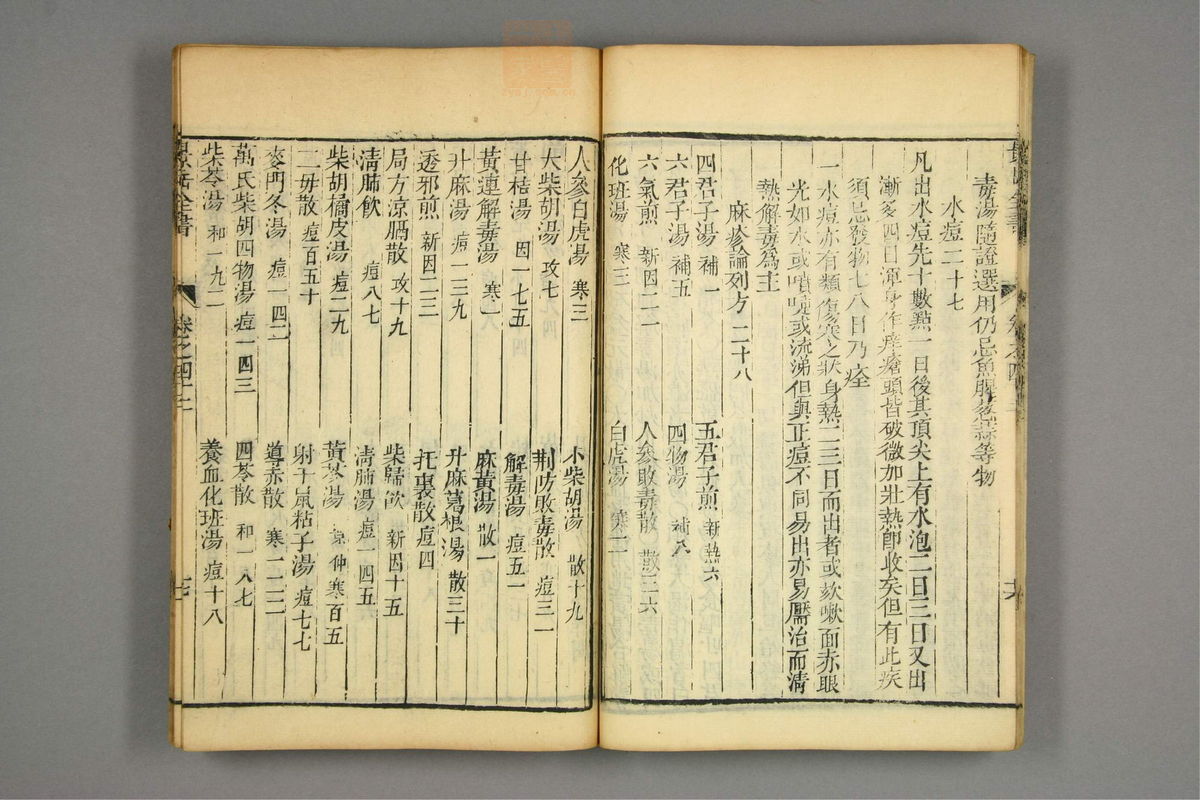 毒湯隨證選用仍忌魚腥葱蒜等物
水痘二十七
凡出水痘先十數點一日後其頂尖上有水泡二日三日又出
漸多四日渾身作痒瘡頭皆破微加壯熱卽收矣但有此疾
須忌發物七八日乃痊
一水痘亦有類傷寒之狀身熱二三日而出者或欬嗽面赤眼
光如水或噴嚏或流涕但與正痘不同易出亦易靨治而清
熱解毒爲主
麻疹論列方 二十八
四君子湯 補一 五君子煎 新熱六
六君子湯 補五 四物湯 補八
六氣煎 新因二一 人參敗毒散 散三六
化班湯 寒三 白虎湯 寒二
人參白虎湯 寒三 小柴胡湯 散十九
大柴胡湯 攻七 荆防敗毒散 痘三一
甘桔湯 因一七五 解毒湯 痘五一
黃連解毒湯 寒一 麻黃湯 散一
升麻湯 痘一三九 升麻葛根湯 散三十
透邪煎 新因二三 托裏散 痘四
局方涼膈散 攻十九 柴歸飲 新因十五
清肺飲 痘八七 清肺湯 痘一四五
柴胡橘皮湯 痘二九 黃芩湯 仲寒百五
二毋散 痘百五十 射干鼠粘子湯 痘七七
麥門冬湯 痘一四二 導赤散 寒一二二
萬氏柴胡四物湯 痘一四三 四苓散 和一八七
柴苓湯 和一九二 養血化班湯 痘十八
景岳全書 卷之四十三 七